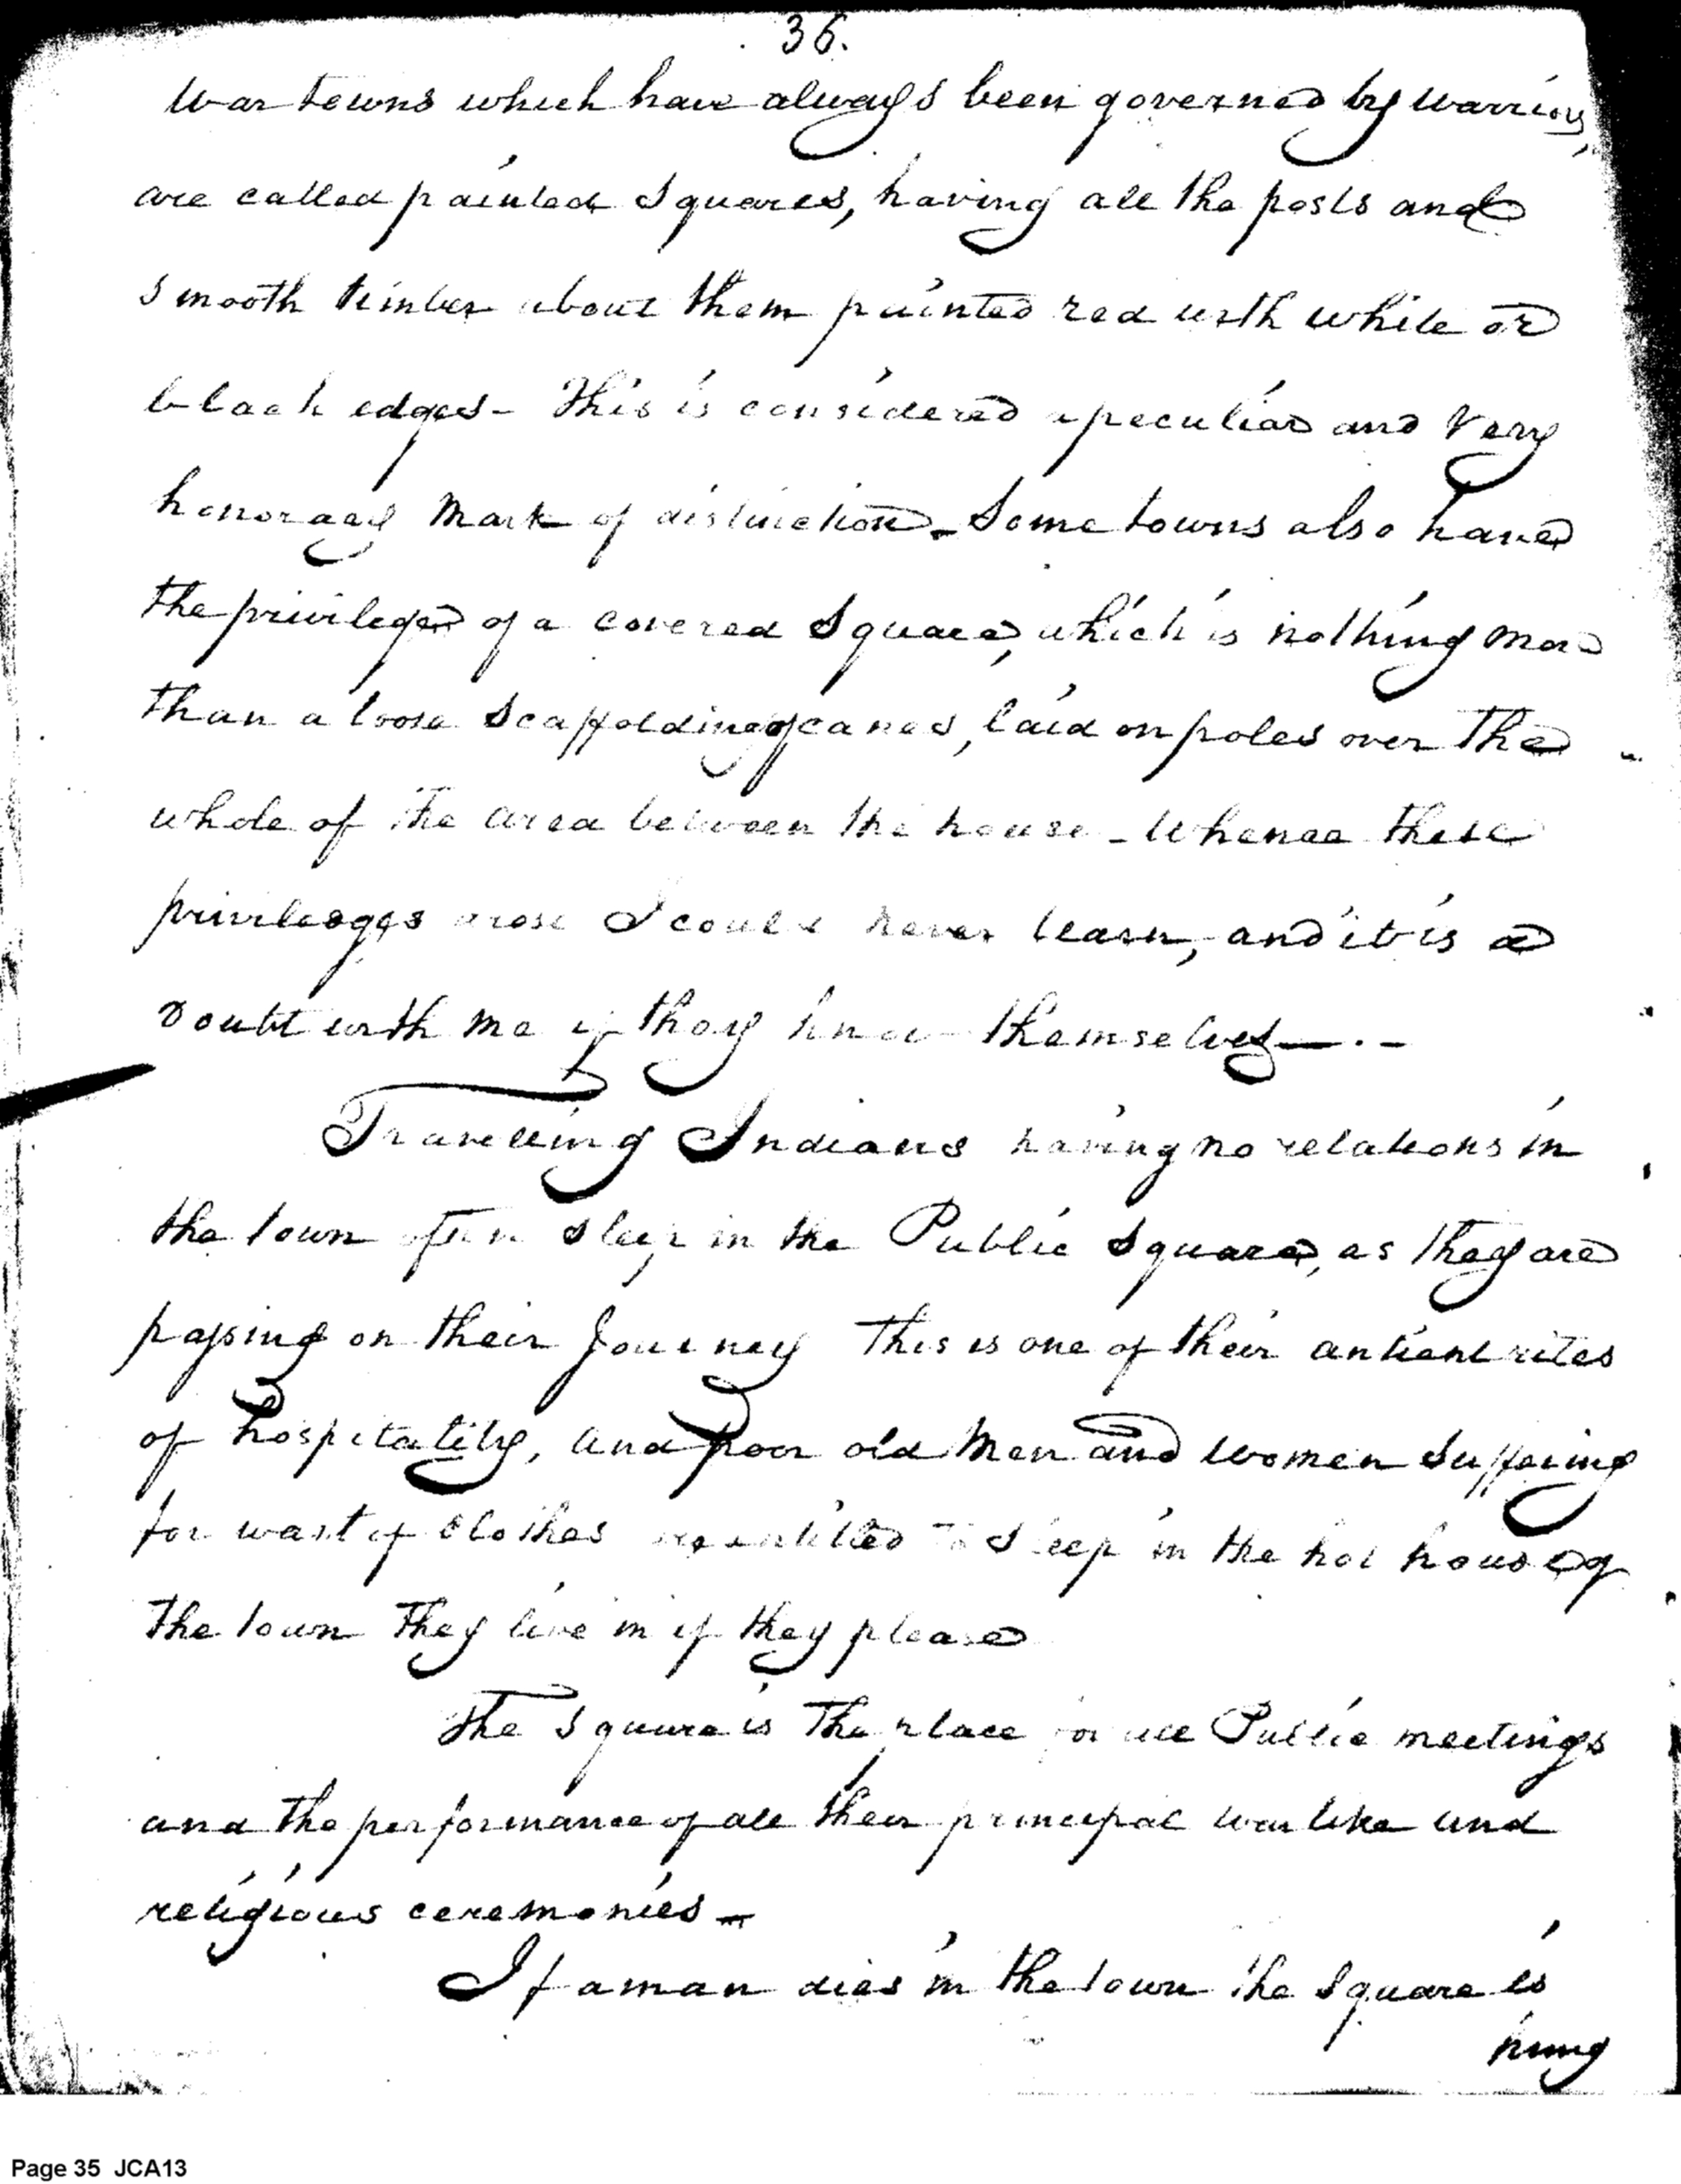 36.
War towns which have always been governed by warriors,
are called painted Squares, having all the posts and
smooth timber about them painted red with white or
black edges - This is considered a peculiar and very
honorary mark of distinction - Some towns also have
the privilege of a covered Square, which is nothing more
than a loose scaffolding of canes, laid on poles over the
whole of the area between the house - Whence these
privileges arose I could never learn, and it is a
doubt with me if they know themselves — . -
Travelling Indians having no relations in
the town often sleep in the Public Square, as they are
passing on their Journey This is one of their antient rites
of hospitality, and poor old men and women suffering
for want of clothes are entitled to sleep in the hot house of
the town they live in if they please
The Square is the place for all Public meetings
and the performance of all their principal warlike and
religious ceremonies -
If a man dies in the town the square is
hung
Page 35 JCA13